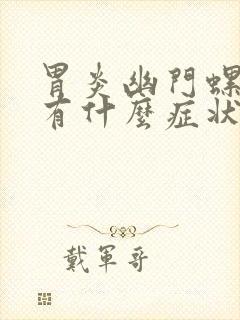 胃炎幽門螺
有什麼症狀
戴軍哥